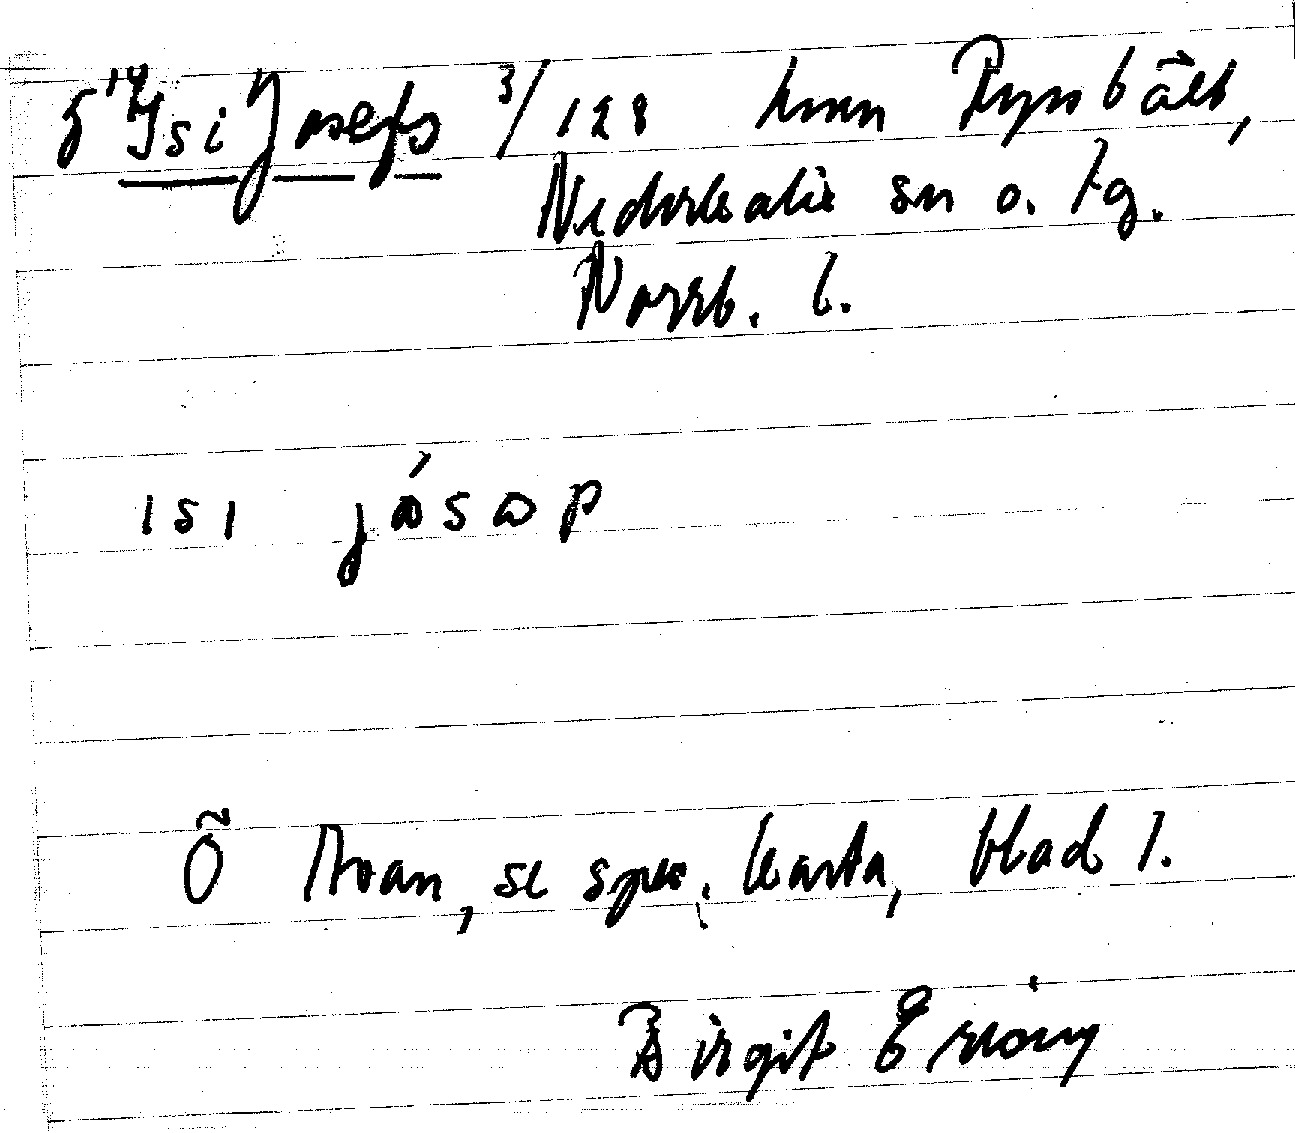 Isi Josefs 3/128 hmn Rynbäck,
Nederkalix sn o. tg.
Norrb. l.
ısı jósap
Ö kvan, se spec. karta, blad 1.
Birgit Eriony